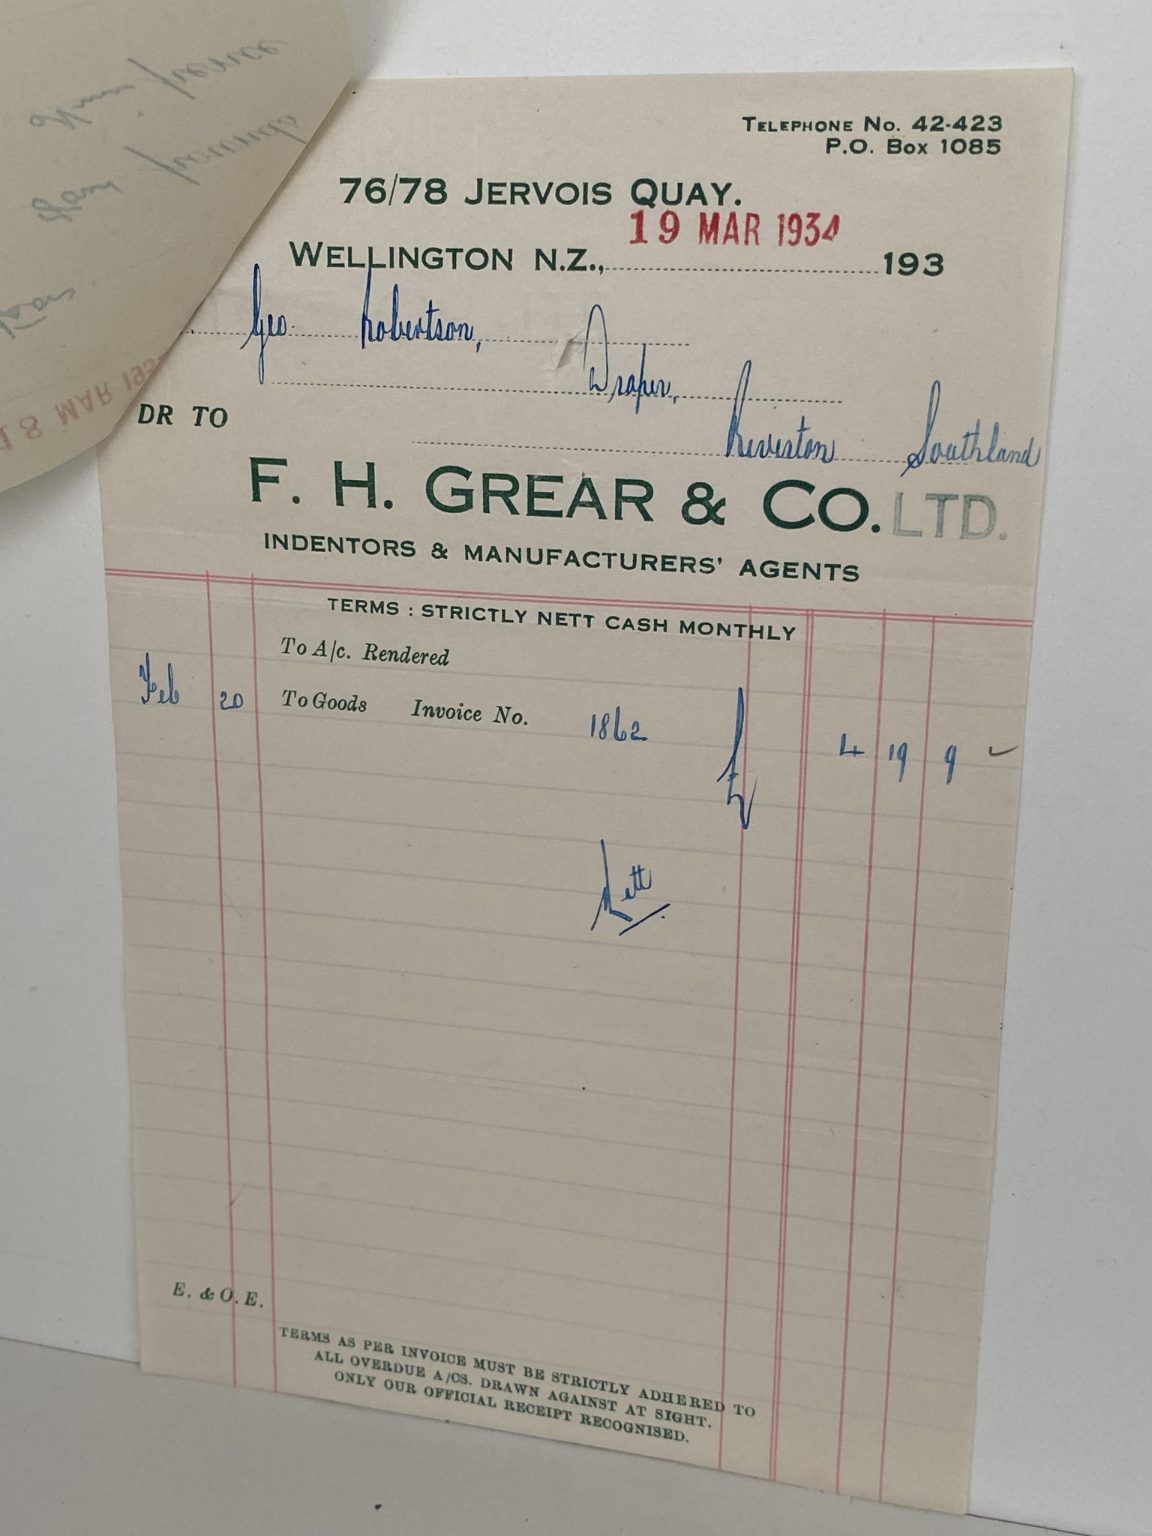 TELEPHONE NO. 42-423
P.O. BOX 1085
76/78 JERVOIS QUAY.
19 MAR 1934
WELLINGTON N.Z., 193
Geo. Robertson,
Draper,
DR TO
Riverton Southland
F. H. GREAR & CO. LTD.
INDENTORS & MANUFACTURERS' AGENTS
TERMS : STRICTLY NETT CASH MONTHLY
To A/c. Rendered
Feb 20 To Goods Invoice No. 1862 4 19 9
Nett
E. & O. E.
TERMS AS PER INVOICE MUST BE STRICTLY ADHERED TO
ALL OVERDUE A/CS. DRAWN AGAINST AT SIGHT.
ONLY OUR OFFICIAL RECEIPT RECOGNISED.